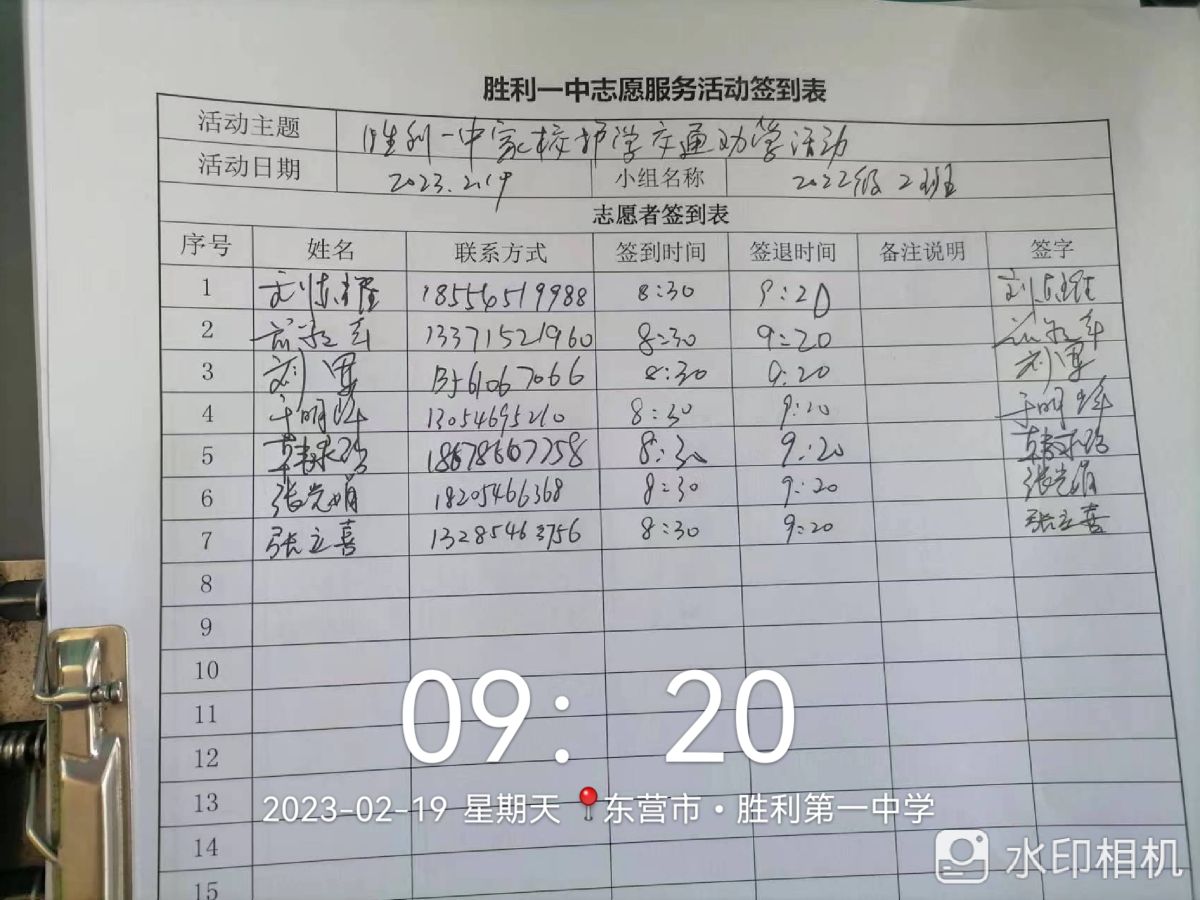 胜利一中志愿服务活动签到表
活动主题 胜利一中家校护学交通劝学活动
活动日期 2023.2.19 小组名称 2022级2班
志愿者签到表
序号 姓名 联系方式 签到时间 签退时间 备注说明 签字
1 18554519988 8:30 9:20
2 13371521960 8:30 9:20
3 刘军 13561067066 8:30 9:20 刘军
4 13054695210 8:30 9:20
5 18678667758 8:30 9:20
6 张光娟 18205466368 8:30 9:20 张光娟
7 张立喜 13285463756 8:30 9:20 张立喜
8
9
10
11
12
13
14
15
09:20
2023-02-19 星期天 东营市·胜利第一中学
水印相机